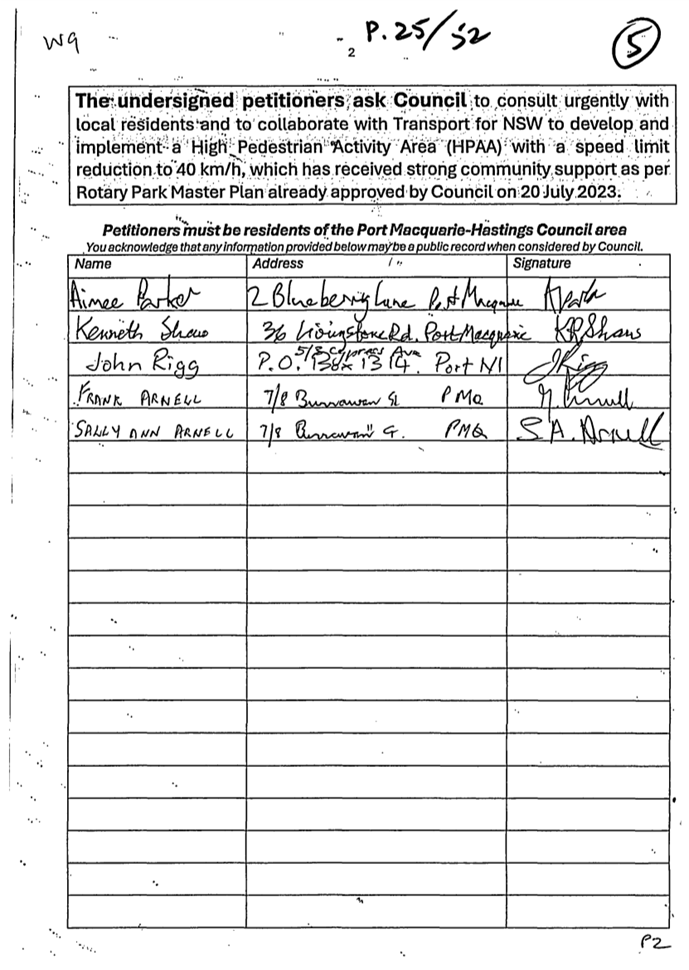 W9
P.25/32
2
5
The undersigned petitioners ask Council to consult urgently with
local residents and to collaborate with Transport for NSW to develop and
implement a High Pedestrian Activity Area (HPAA) with a speed limit
reduction to 40 km/h, which has received strong community support as per
Rotary Park Master Plan already approved by Council on 20 July 2023.
Petitioners must be residents of the Port Macquarie-Hastings Council area
You acknowledge that any information provided below may be a public record when considered by Council.
Name Address Signature
Aimee Parker 2 Blueberry Lane Port Macquarie
Kenneth Shaw 36 Livingstone Rd. Port Macquarie KR Shaw
5/8 Cypress Ave
John Rigg P.O. Box 1314. Port JRigg
FRANK ARNELL 7/8 Burrawan St PMQ
SALLY ANN ARNELL 7/8 Burrawan PMQ S A. Arnell
P2